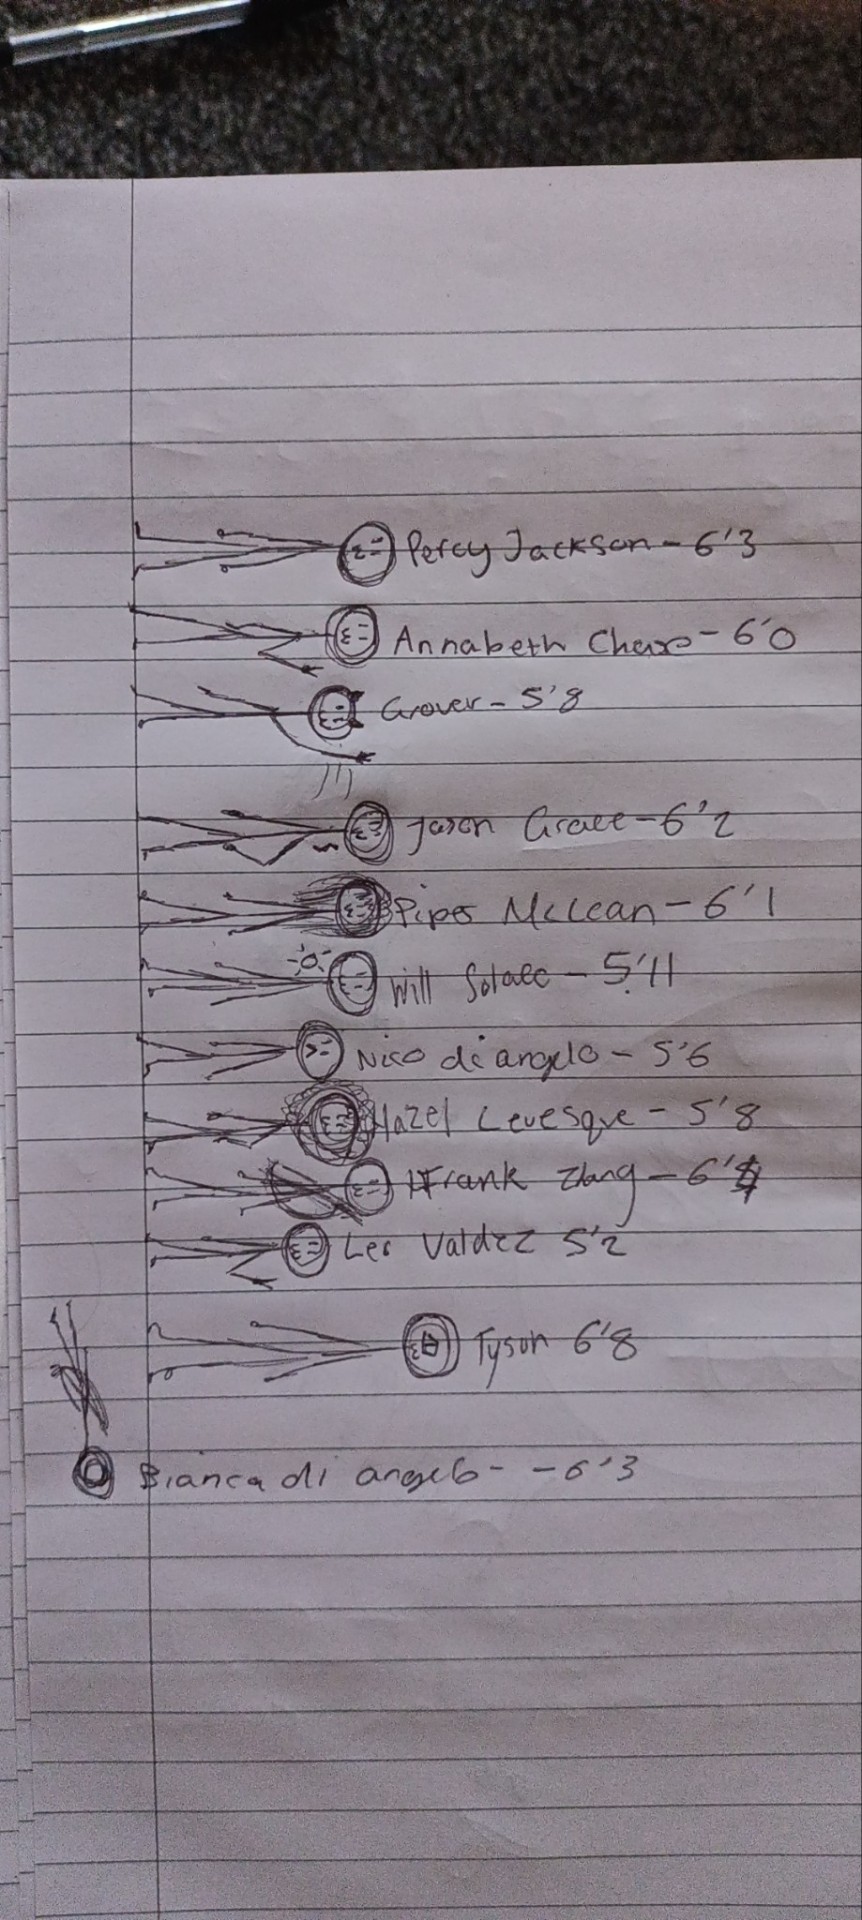 Percy Jackson - 6'3
Annabeth Chase - 6'0
Grover - 5'8
Jason Grace - 6'2
Piper McLean - 6'1
Will Solace - 5'11
Nico di angelo - 5'6
Hazel Levesque - 5'8
Frank Zhang - 6'
Leo Valdez 5'2
Tyson 6'8
Bianca di angelo - - 6'3